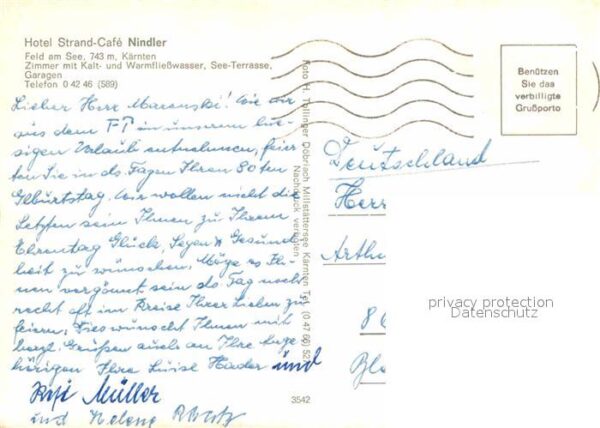 Hotel Strand-Café Nindler
Feld am See, 743 m, Kärnten
Zimmer mit Kalt- und Warmfließwasser, See-Terrasse,
Garagen
Telefon 0 42 46 (589)
Lieber Herr ! Wie wir
aus dem FT in unserem hie-
sigen Urlaub entnehmen, feier-
ten Sie in ds. Tagen Ihren 80ten
Geburtstag. Wir wollen nicht die
Letzten sein Ihnen zu Ihrem
Ehrentag Glück, Segen u Gesund-
heit zu wünschen. Möge es Ih-
nen vergönnt sein ds. Tag noch
recht oft im Kreise Ihrer Lieben zu
feiern. Dies wünscht Ihnen mit
herzl. Grüßen auch an Ihre Ange-
hörigen Ihre Luise und
Müller
und Helene
Foto H. Döbriach Millstättersee Kärnten Tel. (0 47 66) 52
Nachdruck verboten
3542
Benützen
Sie das
verbilligte
Grußporto
Deutschland
Herr
Arth
86
privacy protection
Datenschutz